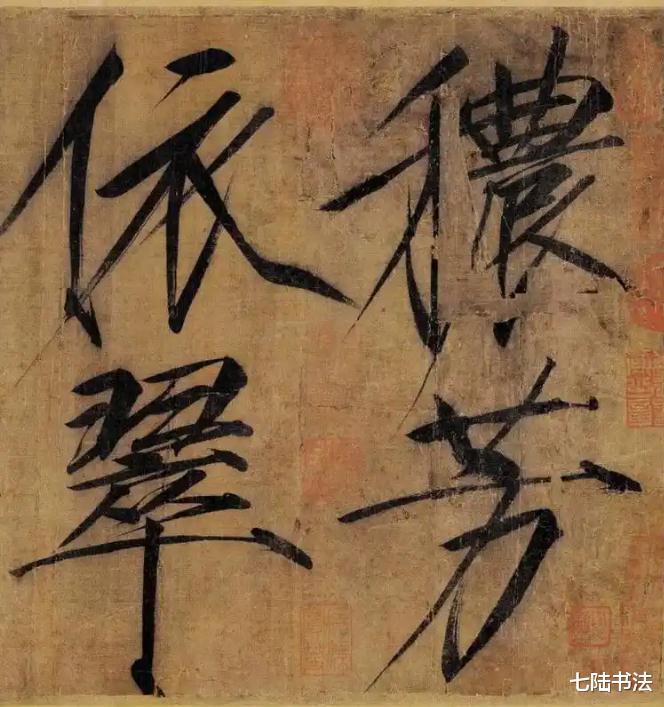 穠芳
依翠
七陆书法